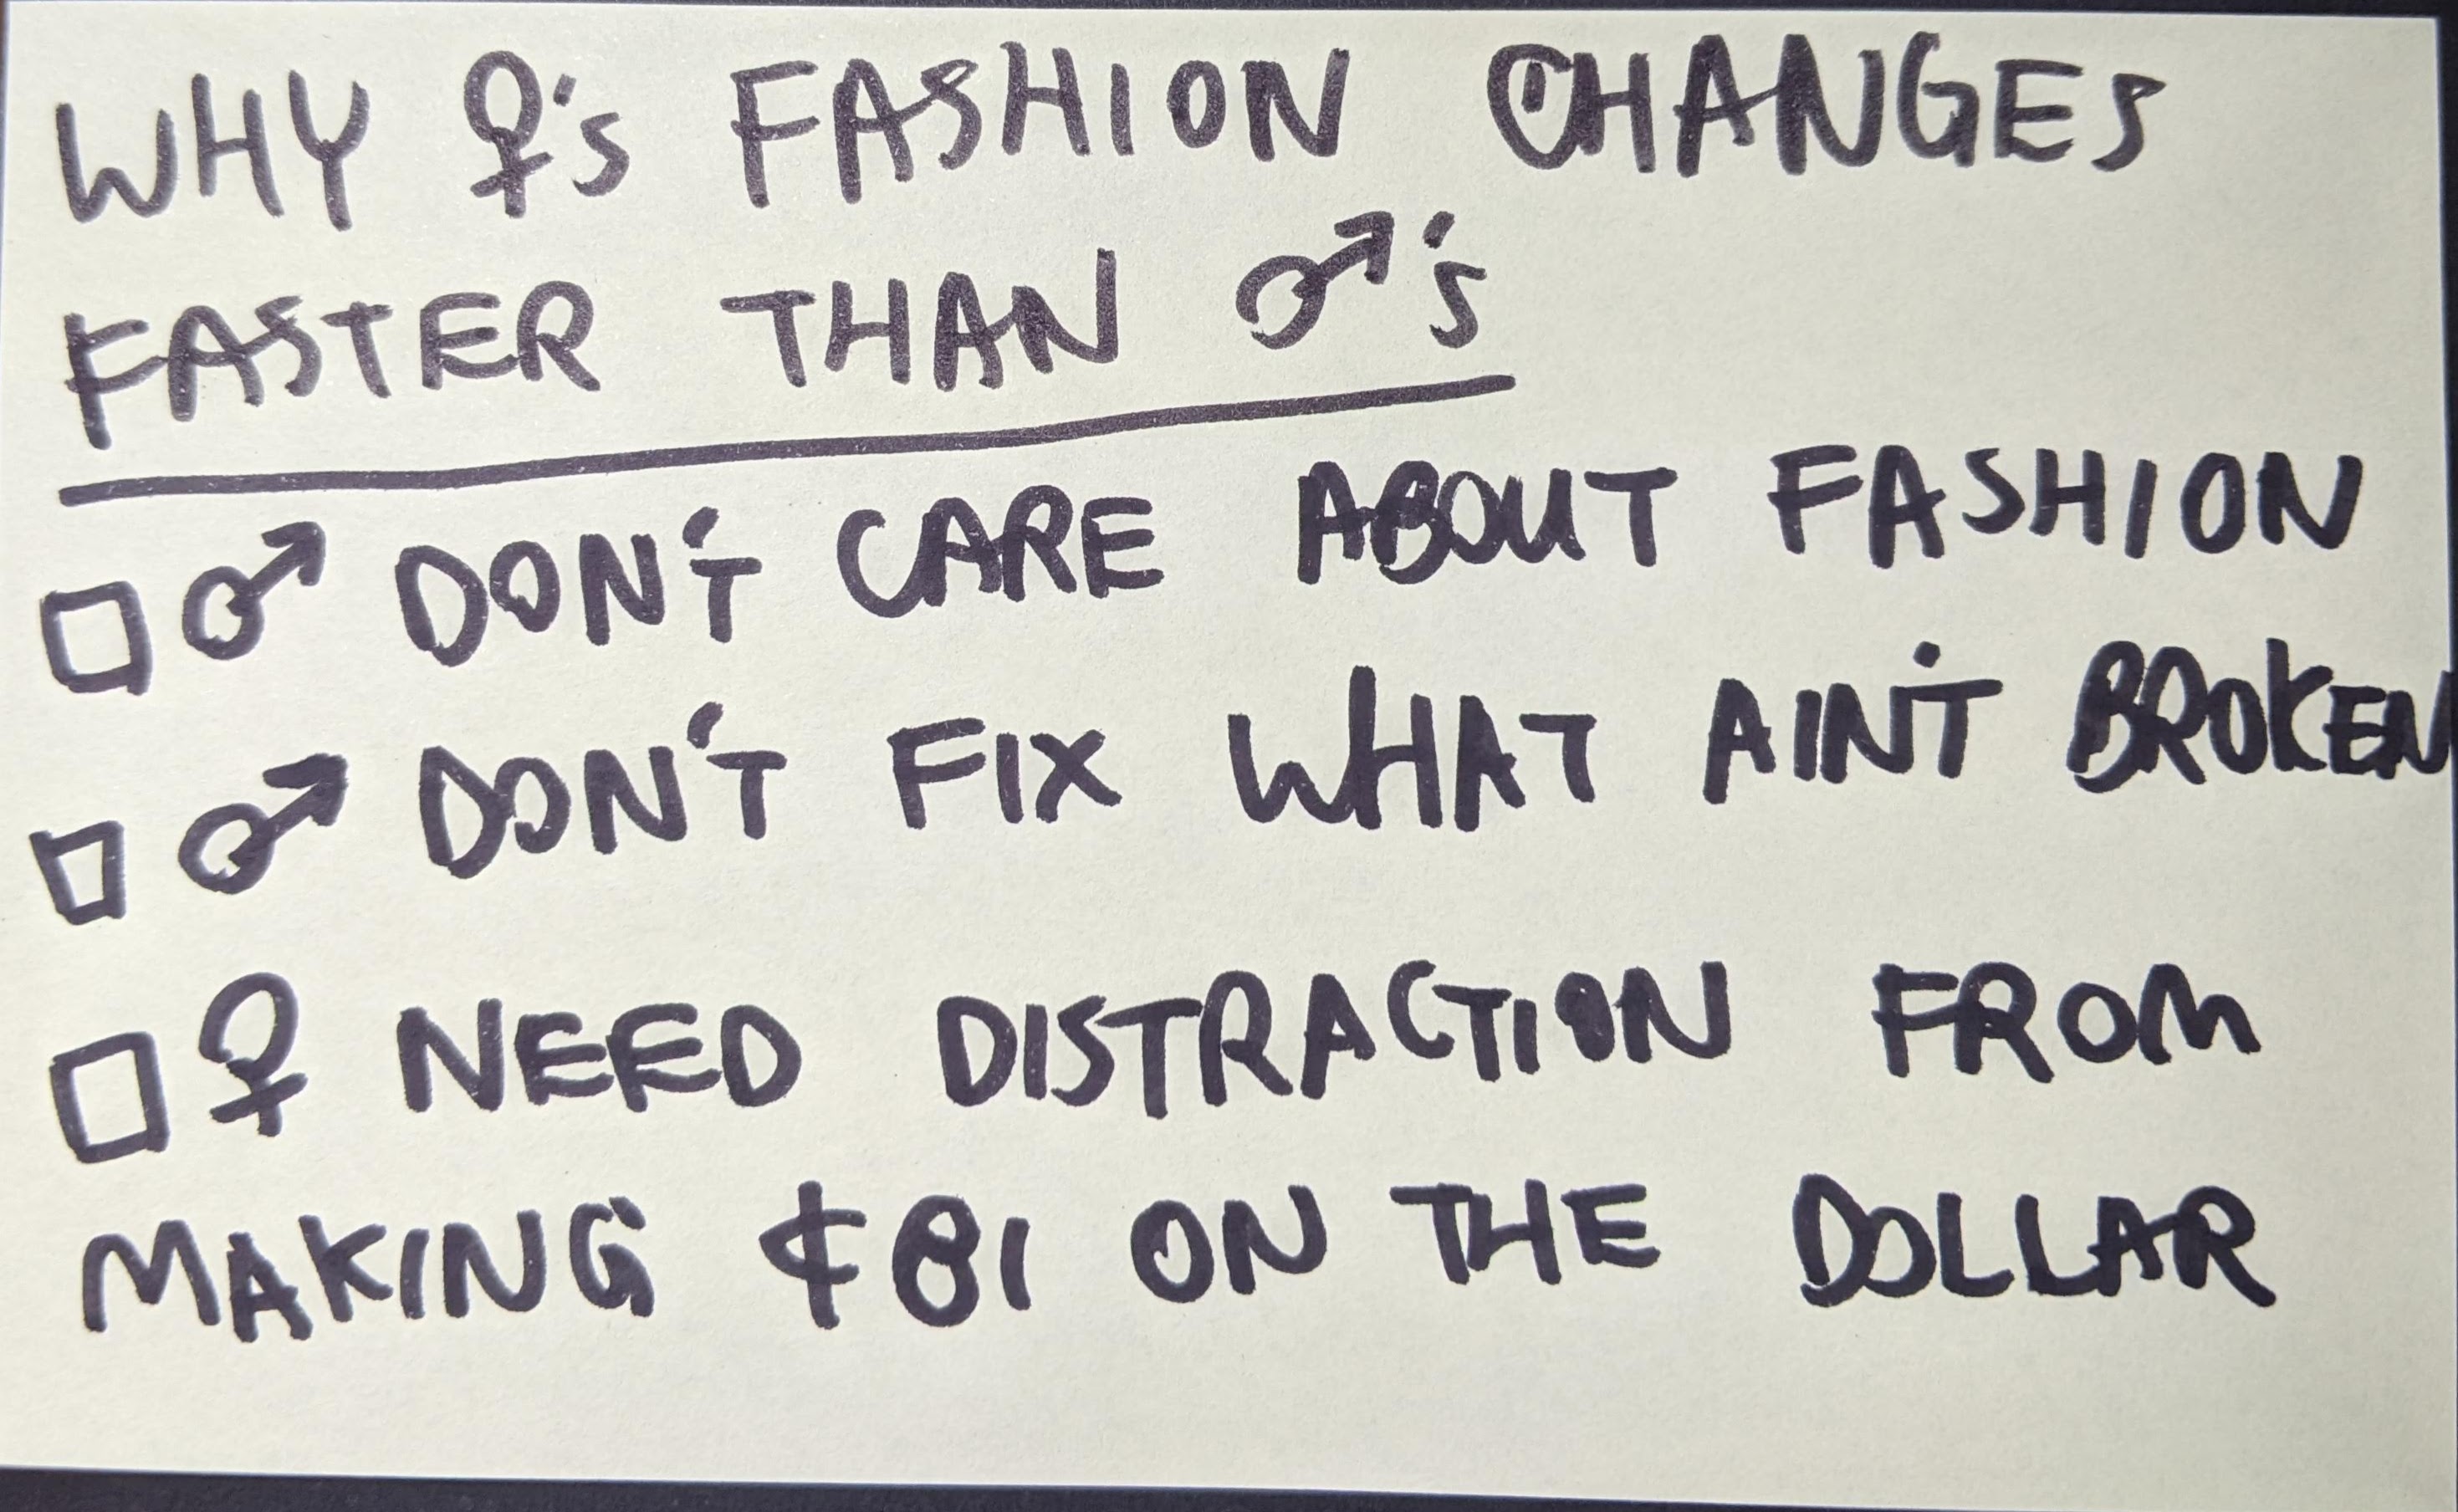 WHY ♀'s FASHION CHANGES
FASTER THAN ♂'s
☐ ♂ DON'T CARE ABOUT FASHION
☐ ♂ DON'T FIX WHAT AIN'T BROKEN
☐ ♀ NEED DISTRACTION FROM
MAKING ¢81 ON THE DOLLAR